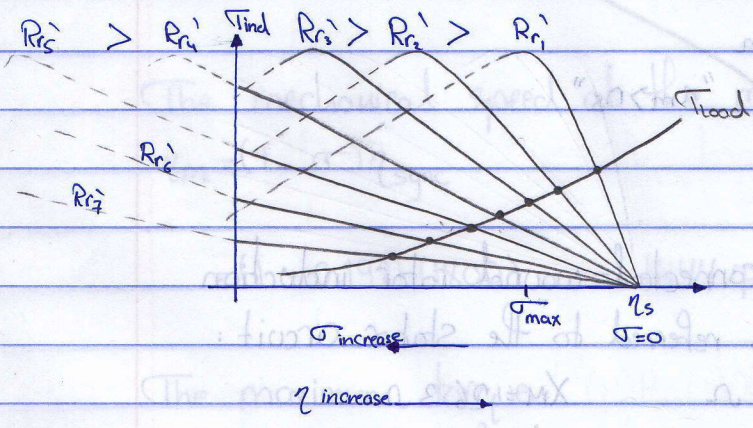 Rr5' > Rr4' Tind Rr3' > Rr2' > Rr1'
Tload
Rr6'
Rr7'
σmax ηs
σ=0
σ increase
η increase